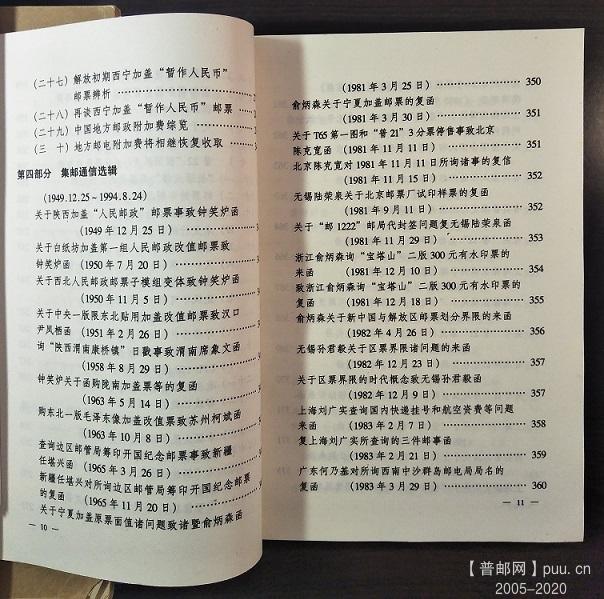 (二十七) 解放初期西宁加盖“暂作人民币”
邮票辨析
(二十八) 再谈西宁加盖“暂作人民币”邮票
(二十九) 中国地方邮政附加费综览
(三 十) 地方邮电附加费将相继恢复收取
第四部分 集邮通信选辑
(1949.12.25~1994.8.24)
关于陕西加盖“人民邮政”邮票事致钟笑炉函
(1949 年 12 月 25 日)
关于白纸坊加盖第一组人民邮政改值邮票致
钟笑炉函 (1950 年 7 月 20 日)
关于西北人民邮政邮票子模组变体致钟笑炉函
(1950 年 11 月 5 日)
关于中央一版限东北贴用加盖改值邮票致汉口
尹凤栖函 (1951 年 2 月 26 日)
询“陕西渭南康桥镇”日戳事致渭南席象文函
(1958 年 8 月 29 日)
钟笑炉关于函购陇南加盖票等的复函
(1963 年 5 月 14 日)
购东北一版毛泽东像加盖改值票致苏州柯斌函
(1963 年 10 月 8 日)
查询边区邮管局筹印开国纪念邮票事致新疆
任堪兴函 (1965 年 3 月 26 日)
新疆任堪兴对所询边区邮管局筹印开国纪念邮票
的复函 (1965 年 11 月 20 日)
关于宁夏加盖原票面值诸问题致诸暨俞炳森函
— 10 —
(1981 年 3 月 25 日) 350
俞炳森关于宁夏加盖邮票的复函
(1981 年 3 月 30 日) 351
关于 T65 第一图和“普 21”3 分票停售事致北京
陈克宽函 (1981 年 11 月 11 日) 351
北京陈克宽对 1981 年 11 月 11 日所询诸事的复信
(1981 年 11 月 15 日) 352
无锡陆荣泉关于北京邮票厂试印样票的复函
(1981 年 9 月 11 日) 352
关于“邮 1222”邮局代封签问题复无锡陆荣泉函
(1981 年 11 月 29 日) 353
浙江俞炳森询“宝塔山”二版 300 元有水印票的
来函 (1981 年 12 月 10 日) 354
致浙江俞炳森询“宝塔山”二版 300 元有水印票的
复函 (1981 年 12 月 18 日) 355
俞炳森关于新中国与解放区邮票划分界限的来函
(1982 年 4 月 26 日) 356
无锡孙君毅关于区票界限诸问题的来函
(1982 年 12 月 23 日) 357
关于区票界限的时代概念致无锡孙君毅函
(1982 年 12 月 9 日) 357
上海刘广实查询国内快递挂号和航空资费等问题
来函 (1983 年 2 月 7 日) 358
复上海刘广实所查询的三件邮事函
(1983 年 2 月 21 日) 359
广东何乃基对所询西南中沙群岛邮电局局名的
复函 (1983 年 3 月 29 日) 360
— 11 —
【普邮网】puu.cn
2005-2020